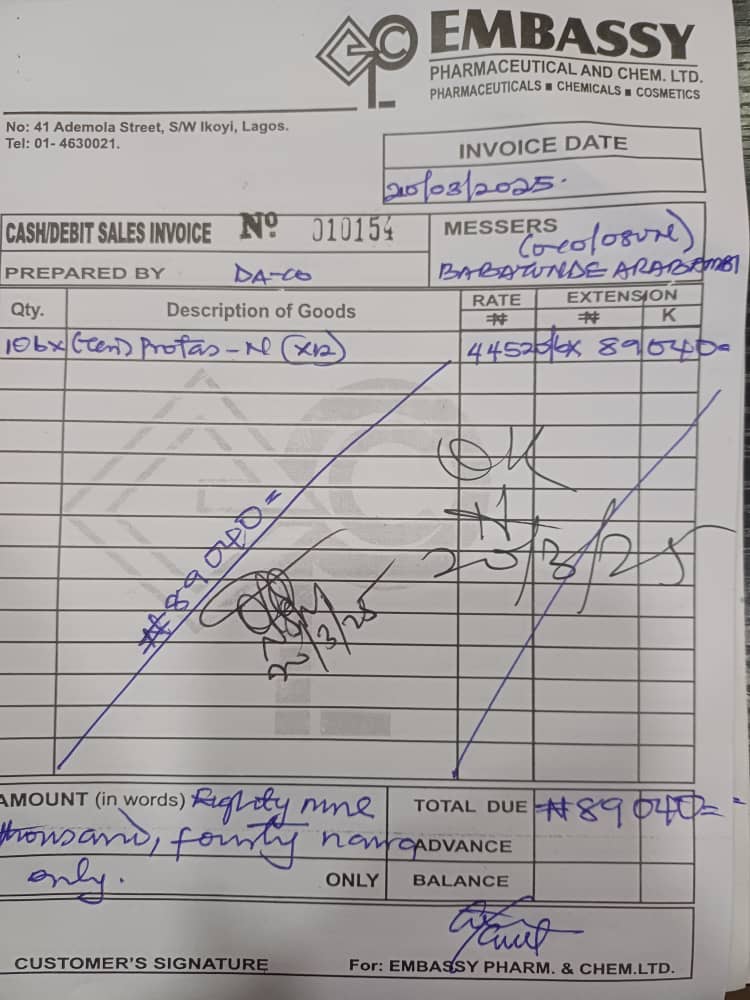 EMBASSY
PHARMACEUTICAL AND CHEM. LTD.
PHARMACEUTICALS ■ CHEMICALS ■ COSMETICS
No: 41 Ademola Street, S/W Ikoyi, Lagos.
Tel: 01- 4630021.
INVOICE DATE
20/03/2025.
CASH/DEBIT SALES INVOICE Nº 010154
MESSERS
PREPARED BY DA-CO
BABATUNDE
Qty. Description of Goods RATE EXTENSION
₦ ₦ K
10bx (Ten) Protas-N (x12) 44520/bx 89040=
OK
20/3/25
₦89040=
20/3/25
AMOUNT (in words) Eighty nine
thousand, fourty naira
only. ONLY
TOTAL DUE ₦89040=
ADVANCE
BALANCE
CUSTOMER'S SIGNATURE For: EMBASSY PHARM. & CHEM.LTD.